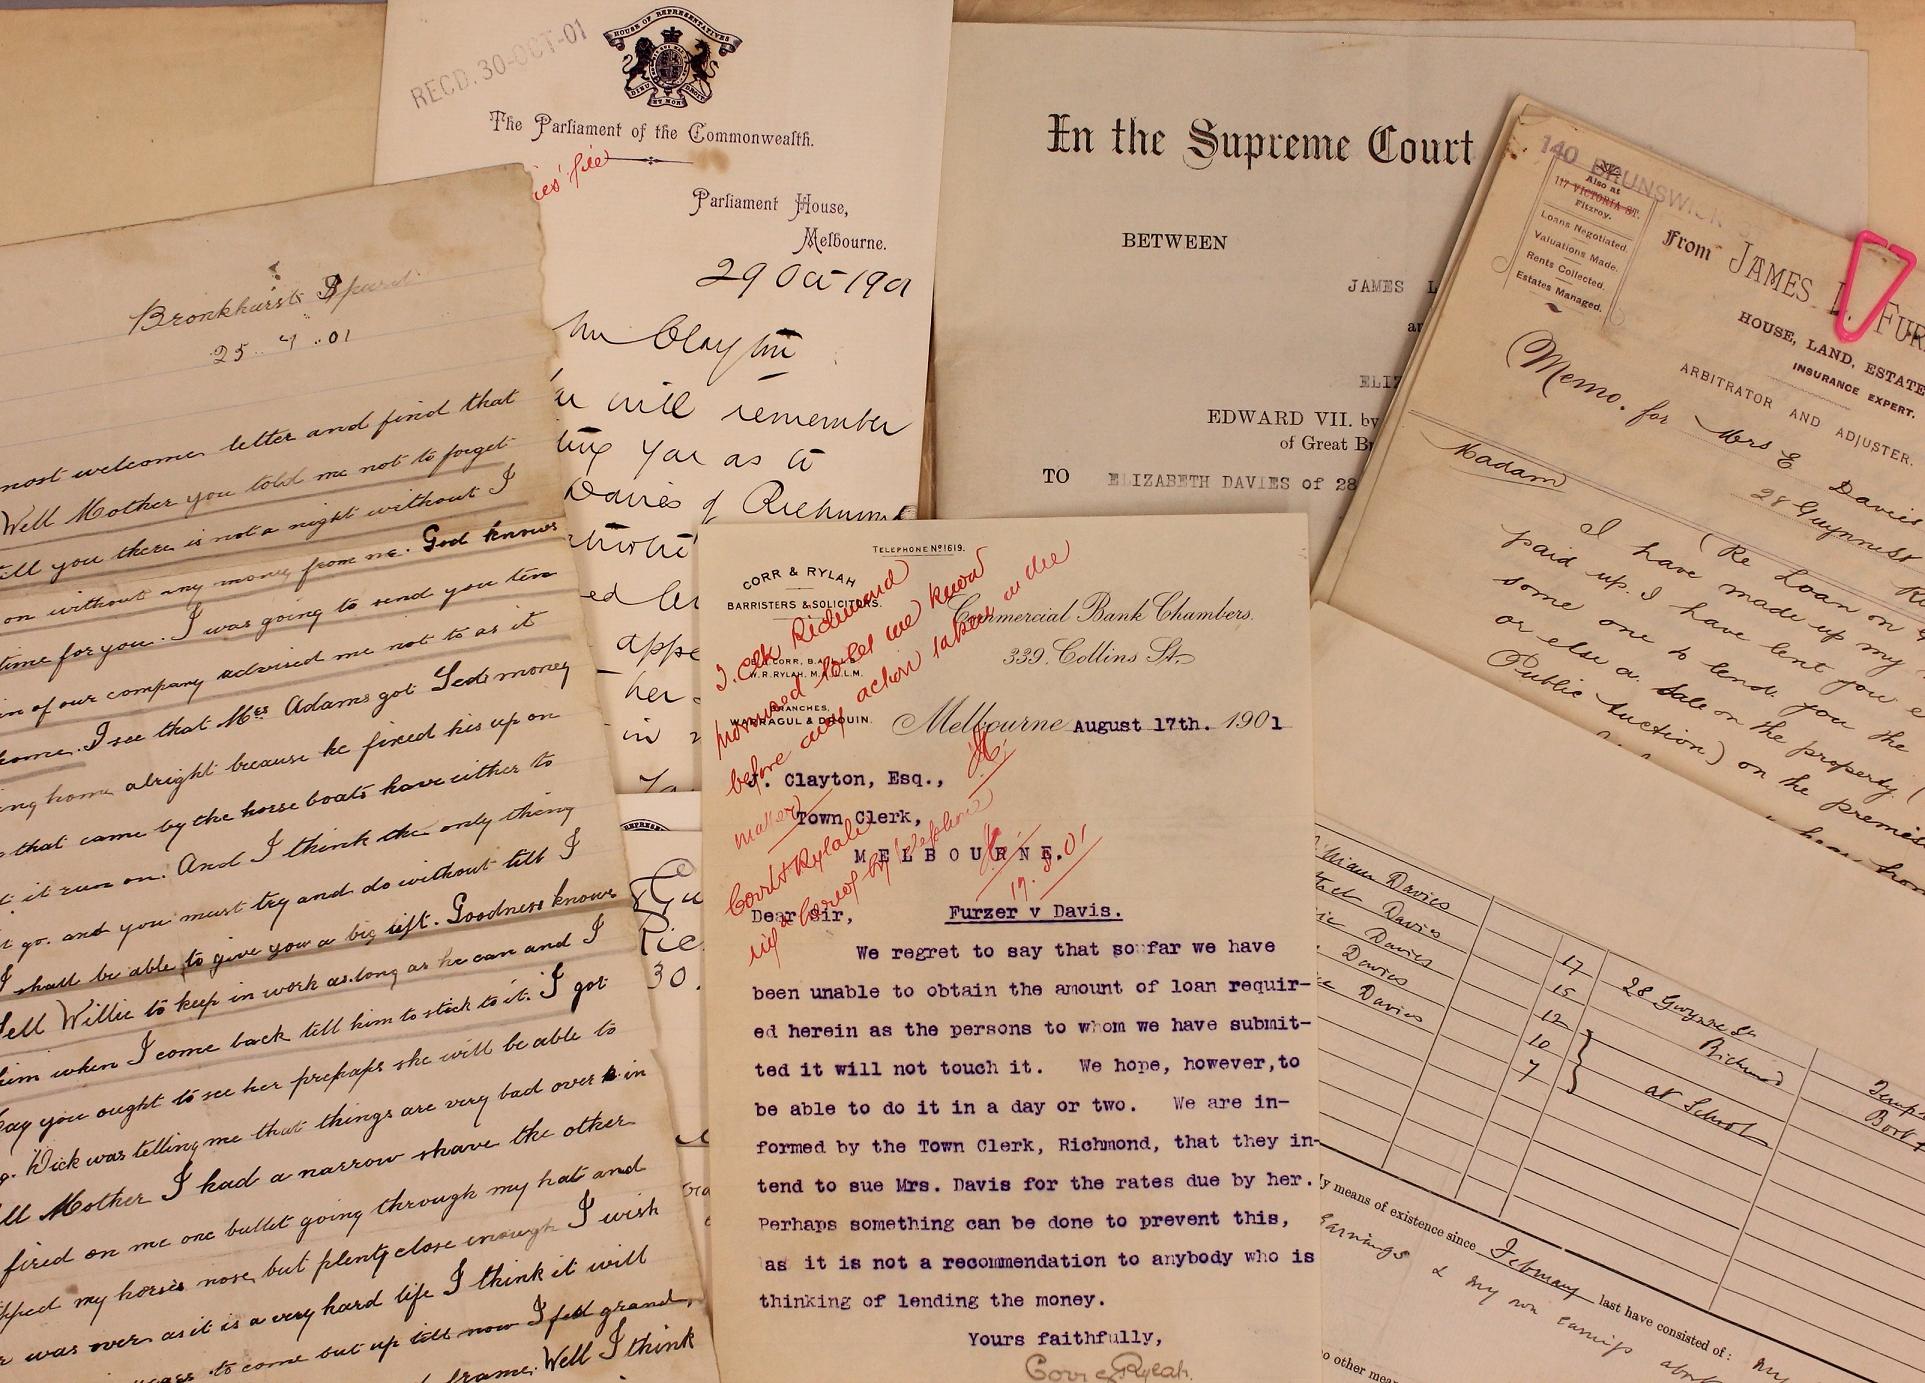 Bronkhurst Spruit
25.. 7 ..01
most welcome letter and find that
Well Mother you told me not to forget
tell you there is not a night without I
on without any money from me. God knows
time for you. I was going to send you ten
in of our company advised me not to as it
home. I see that Mrs Adams got Teds money
ing home alright because he fixed his up on
that came by the horse boats have either to
t it run on. And I think the only thing
t go. and you must try and do without till I
I shall be able to give you a big lift. Goodness knows
Tell Willie to keep in work as long as he can and I
him when I come back tell him to stick to it. I got
say you ought to see her prehaps she will be able to
Dick was telling me that things are very bad over in
ll Mother I had a narrow shave the other
fired on me one bullet going through my hat and
pped my horses nose, but plenty close enough I wish
r was over as it is a very hard life I think it will
to come but up till now I feel grand,
frame. Well I think
RECD. 30-OCT-01
HOUSE OF REPRESENTATIVES
DIEU ET MON DROIT
The Parliament of the Commonwealth.
ies' file
Parliament House,
Melbourne.
29 Oct 1901
Mr Clayton
will remember
ting you as to
Davies of Richmond
ed
appe
her
in
30.
In the Supreme Court
BETWEEN
JAMES L
an
ELIZ
EDWARD VII. by
of Great Br
TO ELIZABETH DAVIES of 28
140 BRUNSWICK
Also at
117 VICTORIA ST.
Fitzroy.
Loans Negotiated.
Valuations Made.
Rents Collected.
Estates Managed.
From JAMES L. FUR
HOUSE, LAND, ESTATE
INSURANCE EXPERT.
ARBITRATOR AND ADJUSTER.
Memo. for Mrs E Davies
28 Gwynne St
Madam
(Re Loan on
I have made up my
paid up. I have lent you
some one to lend you the
or else a Sale on the property (
Public Auction.) on the premise
hear from
TELEPHONE No 1619.
CORR & RYLAH
BARRISTERS & SOLICITORS.
CORR, B.A.
W.R. RYLAH, M.A. L.L.M.
BRANCHES,
WARRAGUL & DROUIN.
Commercial Bank Chambers.
339. Collins St.
Melbourne August 17th. 1901
T. Clk Richmond
promised to let me know
before any action taken in the
matter
Corr & Rylah
by telephone
19.8.01
J. Clayton, Esq.,
Town Clerk,
MELBOURNE.
Dear Sir,
Furzer v Davis.
We regret to say that so far we have
been unable to obtain the amount of loan requir-
ed herein as the persons to whom we have submit-
ted it will not touch it. We hope, however, to
be able to do it in a day or two. We are in-
formed by the Town Clerk, Richmond, that they in-
tend to sue Mrs. Davis for the rates due by her.
Perhaps something can be done to prevent this,
as it is not a recommendation to anybody who is
thinking of lending the money.
Yours faithfully,
Corr & Rylah.
William Davies
Davies
Davies
Davies
Davies
17
15
12
10
7
28 Gwynne St
Richmond
at School
y means of existence since February last have consisted of: My
Earnings & my own earnings about
no other mea